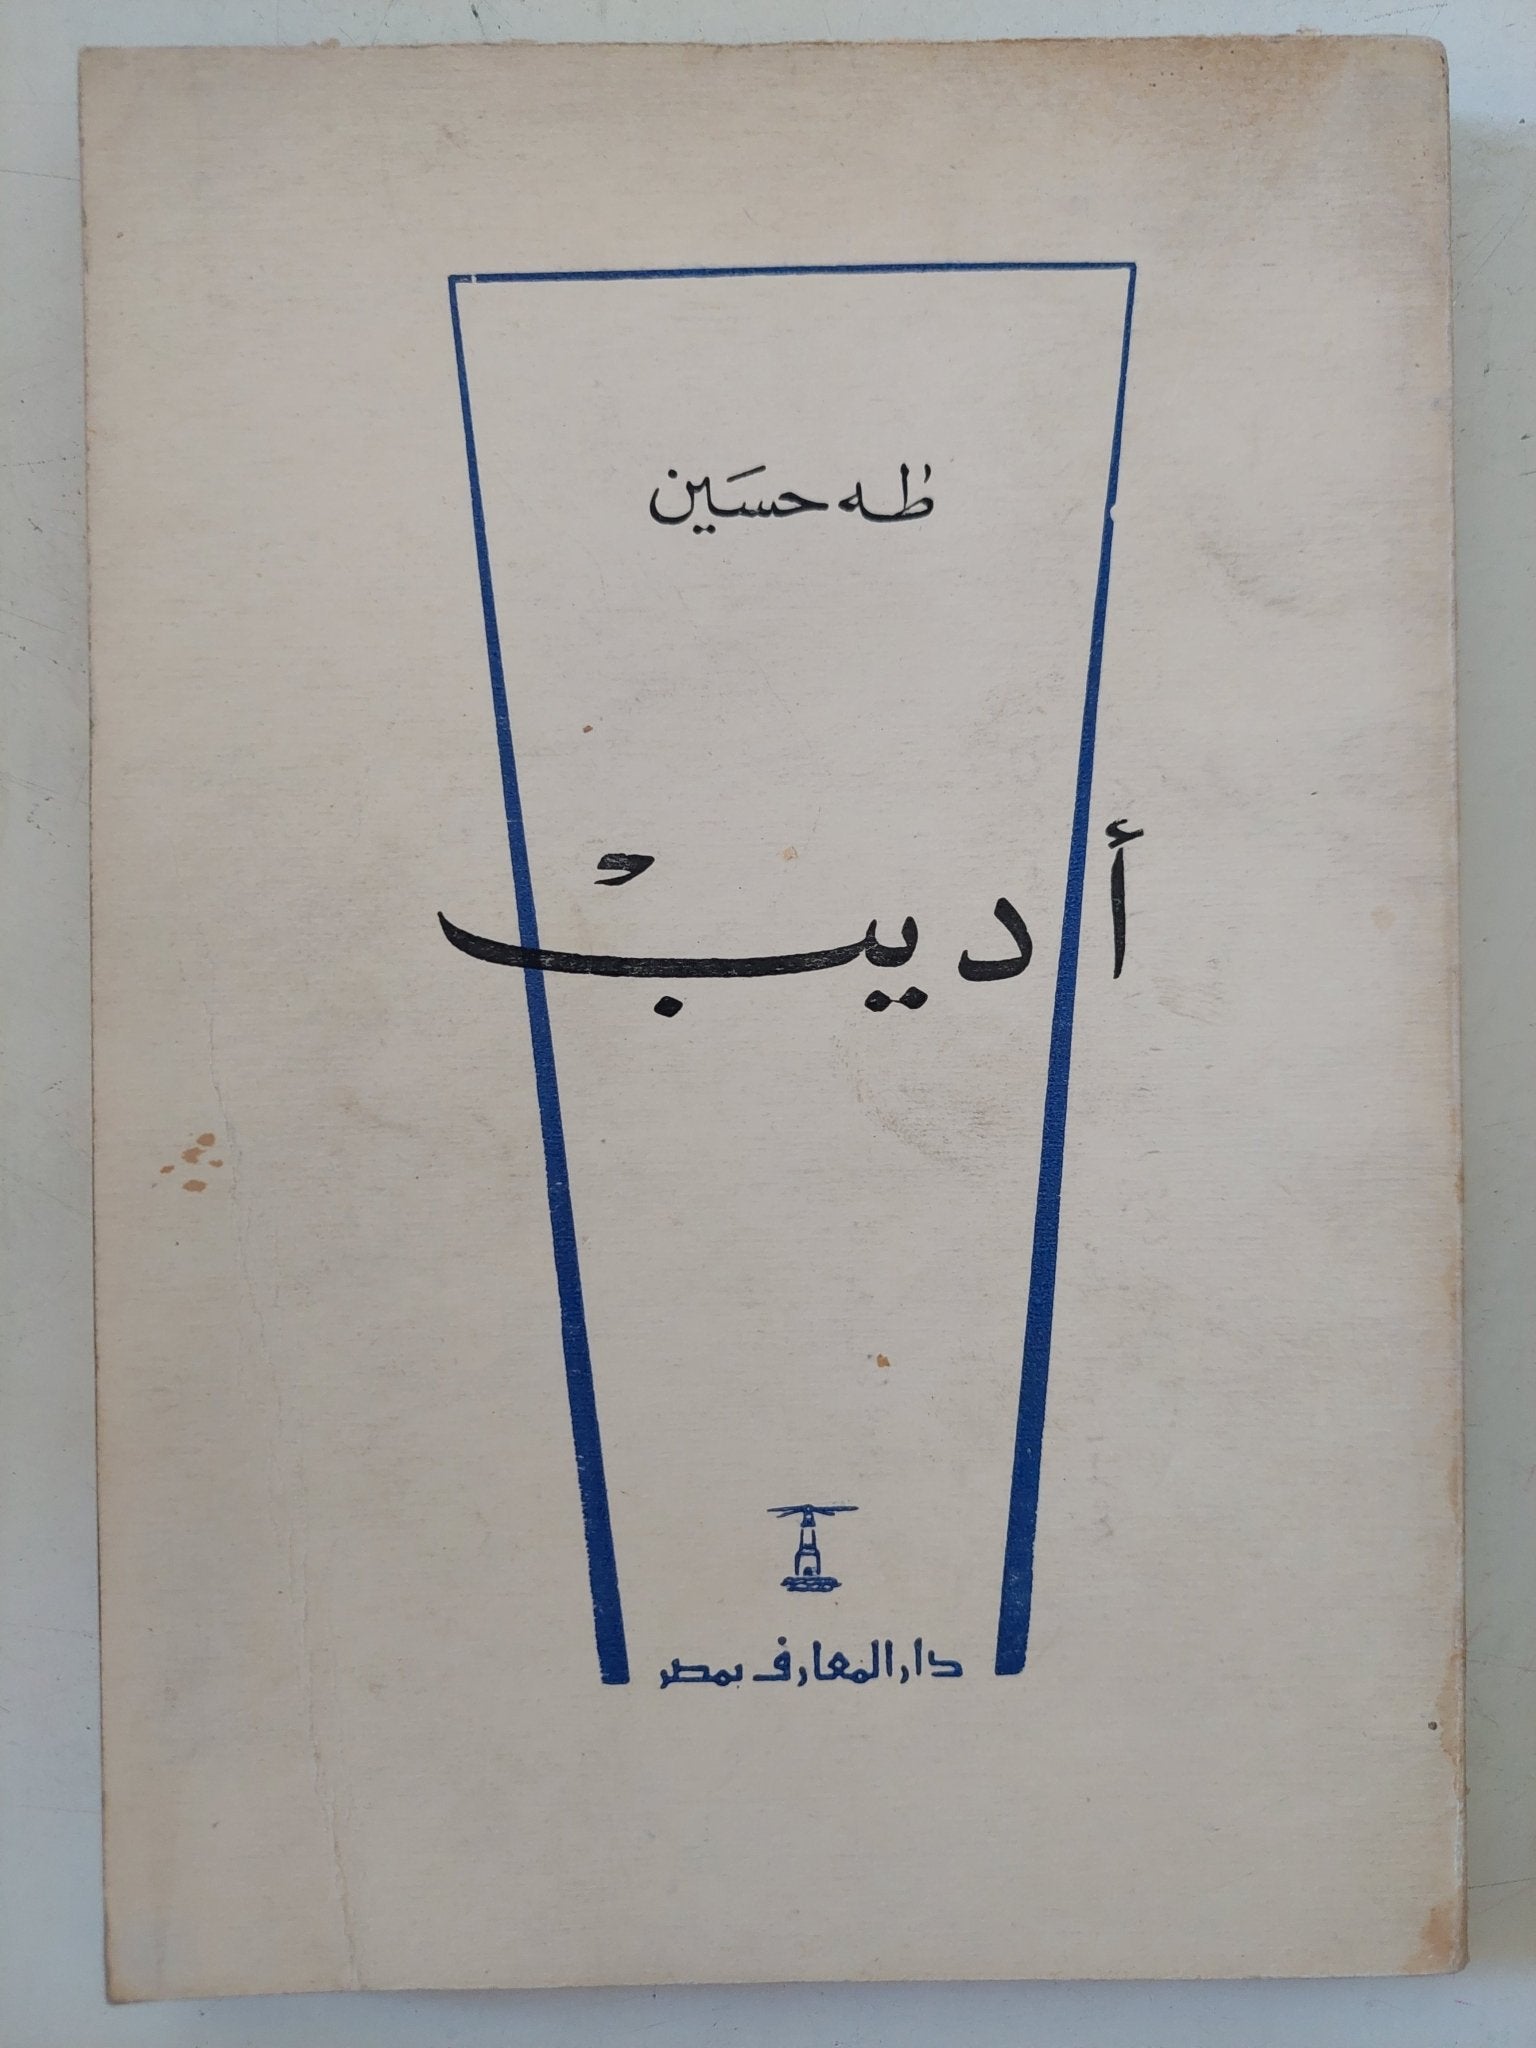 طه حسَين
أديبْ
دار المعارف بمصر